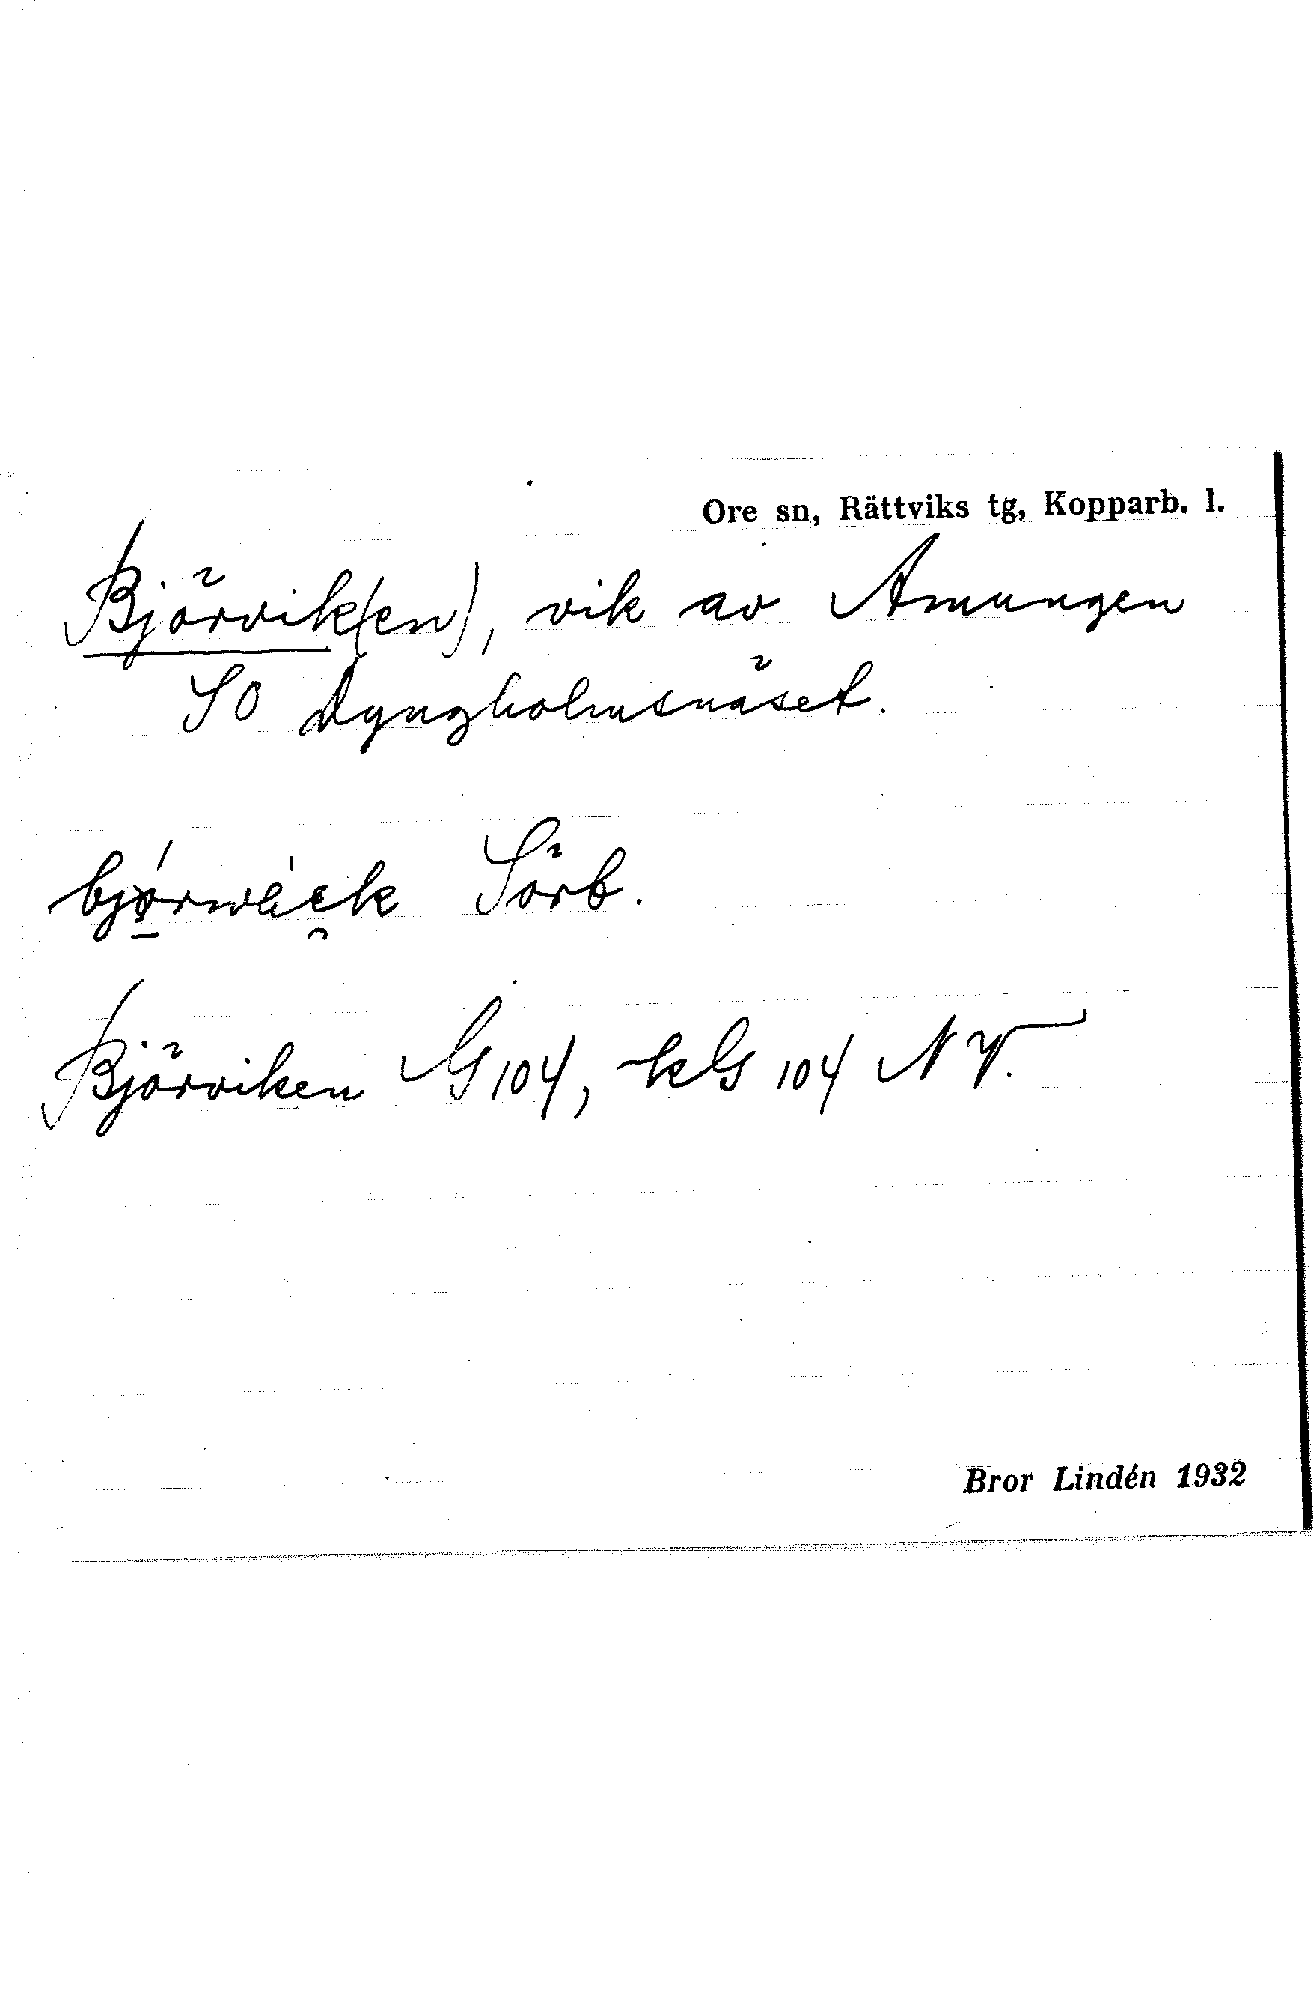 Ore sn, Rättviks tg, Kopparb. l.
Björvik(en), vik av Amungen
SO Dyngholmsnäset.
Sörb.
Björviken G 104, kG 104 NV.
Bror Lindén 1932